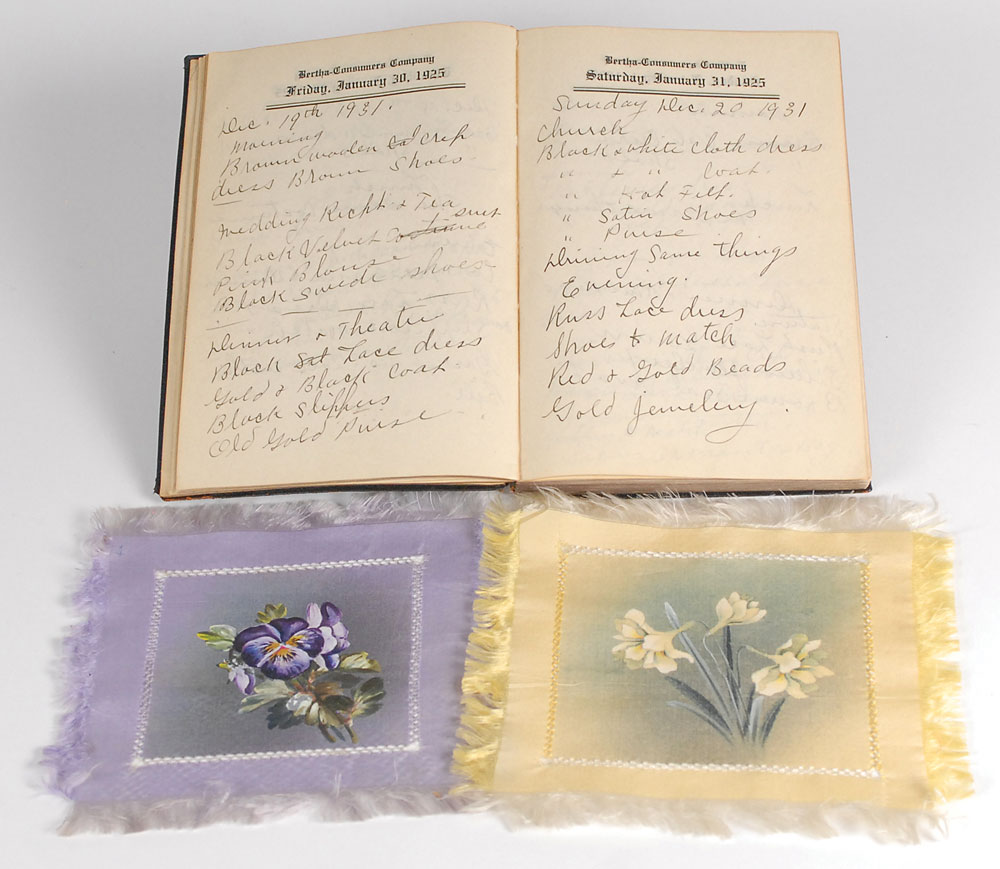 Bertha-Consumers Company
Friday, January 30, 1925
Dec. 19th 1931.
Morning
Brown woolen crep
dress Brown Shoes
Wedding Recht & Tea
Black Velvet suit
Pink Blouse
Black Swede shoes
Dinner & Theatre
Black Lace dress
Gold & Black Coat
Black Slippers
Old Gold Purse
Bertha-Consumers Company
Saturday, January 31, 1925
Sunday Dec. 20 1931
Church
Black & white cloth dress
" & " Coat.
" Hat Felt.
" Satin Shoes
" Purse
Dinning Same things
Evening.
Russ Lace dress
Shoes to match
Red & Gold Beads
Gold jewelery.